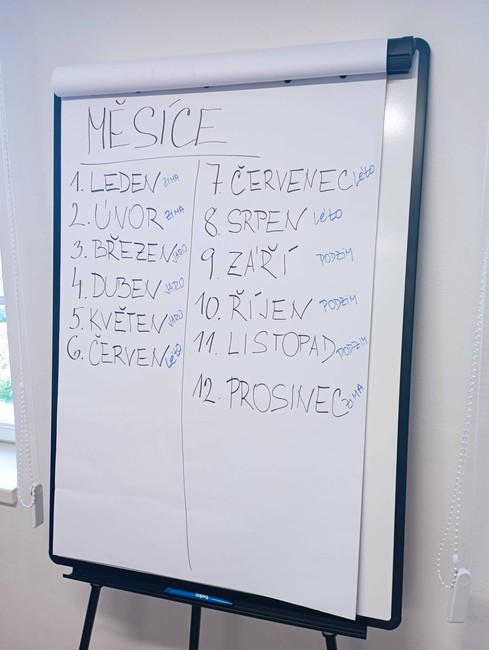 MĚSÍCE
1. LEDEN ZIMA
2. ÚNOR ZIMA
3. BŘEZEN JARO
4. DUBEN JARO
5. KVĚTEN JARO
6. ČERVEN Léto
7 ČERVENEC Léto
8. SRPEN Léto
9. ZÁŘÍ PODZIM
10. ŘÍJEN PODZIM
11. LISTOPAD PODZIM
12. PROSINEC ZIMA